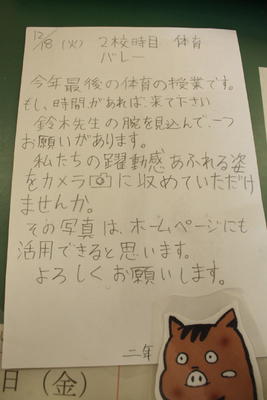 12/18（火） 2校時目 体育
バレー
今年最後の体育の授業です。
もし、時間があれば、来て下さい
鈴木先生の腕を見込んで、一つ
お願いがあります。
私たちの躍動感あふれる姿
をカメラ に収めていただけ
ませんか。
その写真は、ホームページにも
活用できると思います。
よろしくお願いします。
二年
日（金）